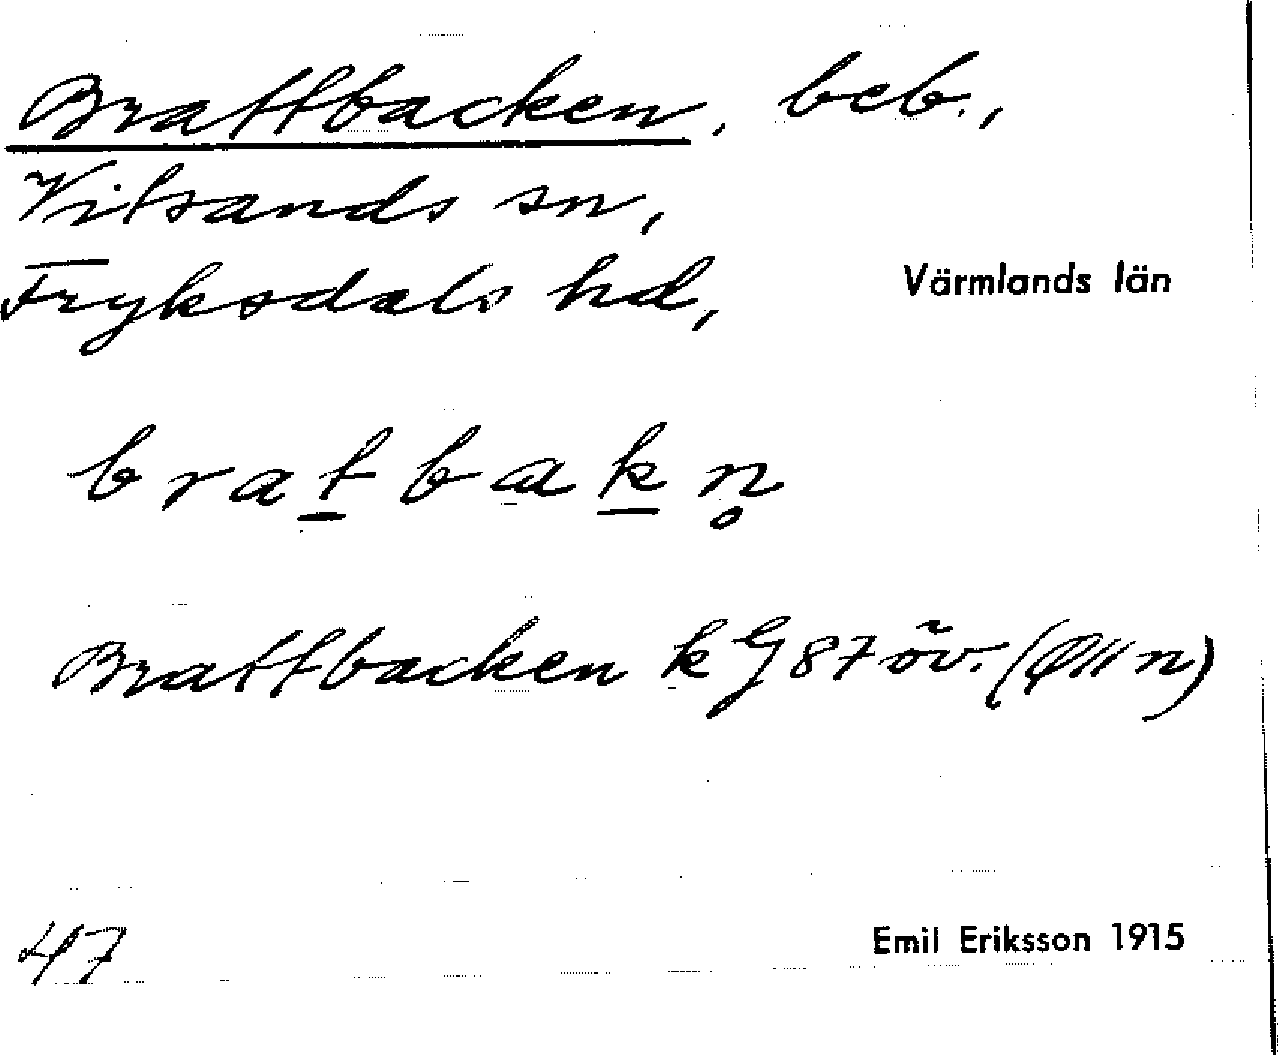 Brattbacken, beb.,
Vitsands sn,
Fryksdals hd,
Värmlands län
bra<u>t</u>ba<u>k</u>n̥
Brattbacken k 87 öv.
47
Emil Eriksson 1915